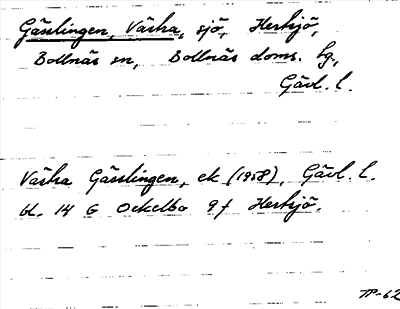 Gässlingen, Västra, sjö, Hertsjö,
Bollnäs sn, Bollnäs doms. lg.,
Gävl. l.
Västra Gässlingen, ek (1958), Gävl. l.
bl. 14 G Ockelbo 9 f Hertsjö.
TP-62